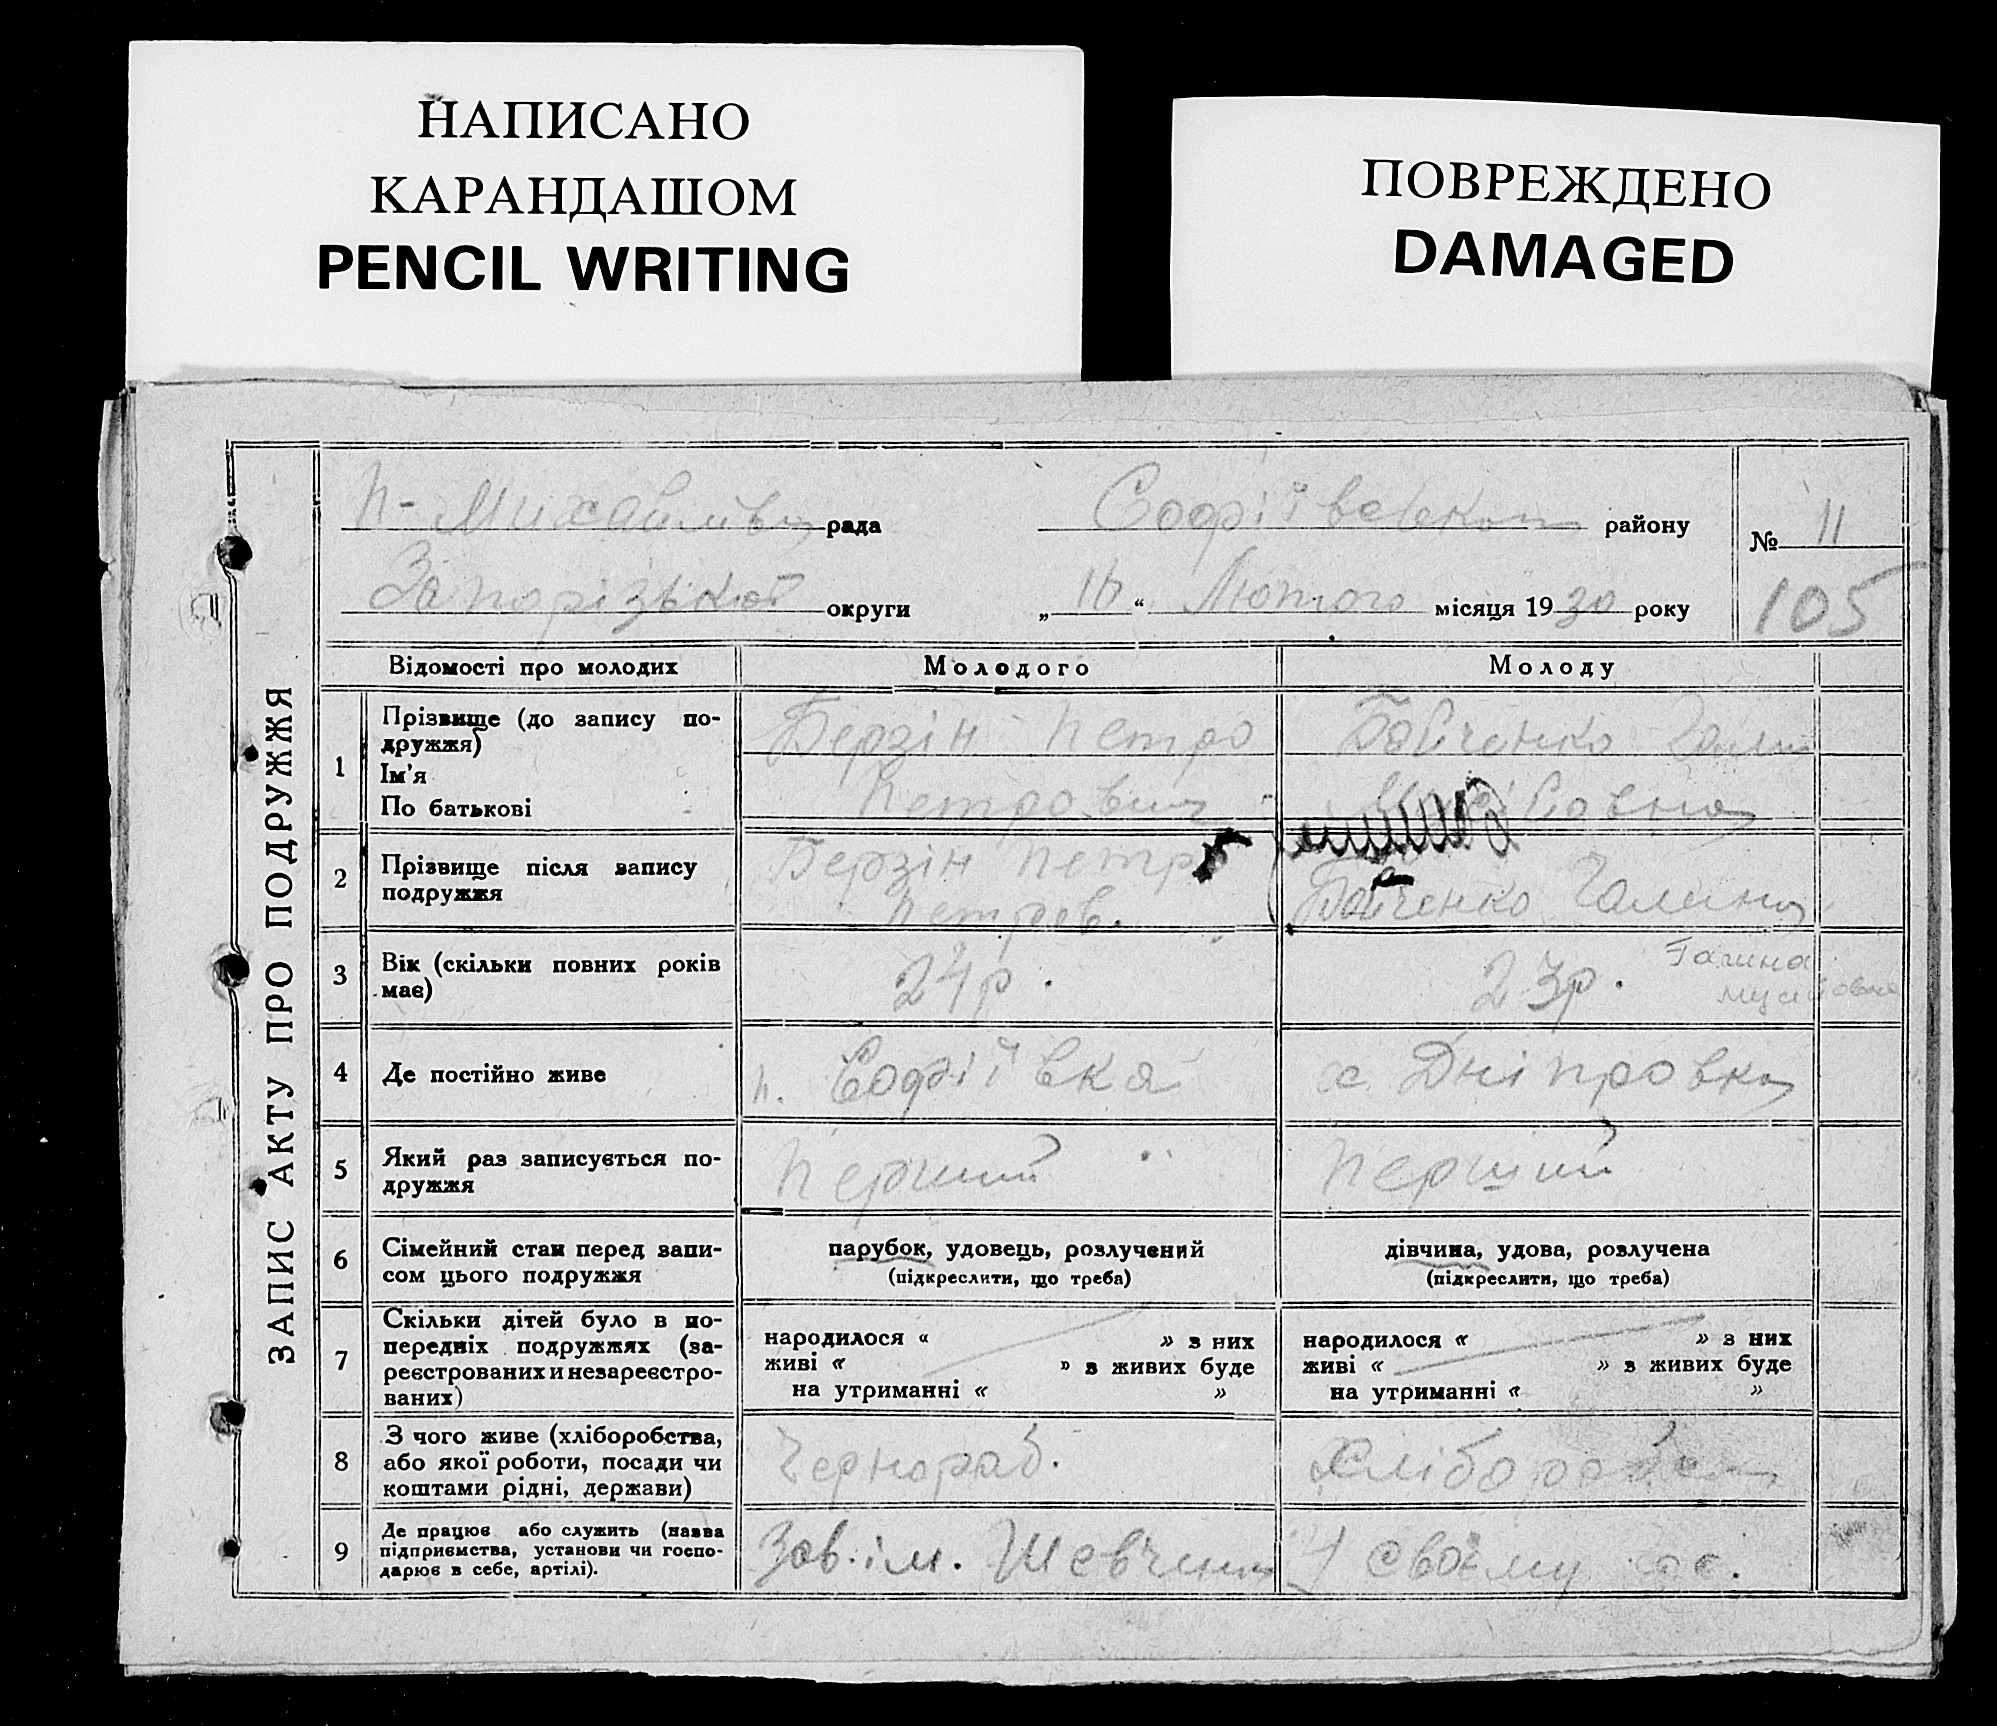 НАПИСАНО
КАРАНДАШОМ
PENCIL WRITING
ПОВРЕЖДЕНО
DAMAGED
ЗАПИС АКТУ ПРО ПОДРУЖЖЯ
П- рада
Софіївського району
№ 11
Запорізької округи
„ “ Лютого місяця 1930 року
105
Відомості про молодих
Молодого
Молоду
1
Прізвище (до запису по-
дружжя)
Ім'я
По батькові
Берзін Петро
Петрович
Бойченко
2
Прізвище після запису
подружжя
Берзін Петро
Петров.
Бойченко Галина
3
Вік (скільки повних років
має)
24 р.
23 р.
Галина
Мусийовна
4
Де постійно живе
п. Софіївка
х. Дніпровка
5
Який раз записується по-
дружжя
Перший
Перший
6
Сімейний стан перед запи-
сом цього подружжя
парубок, удовець, розлучений
(підкреслити, що треба)
дівчина, удова, розлучена
(підкреслити, що треба)
7
Скільки дітей було в по-
передніх подружжях (за-
реєстрованих и незареєстро-
ваних)
народилося « » з них
живі « » з живих буде
на утриманні « »
народилося « » з них
живі « » з живих буде
на утриманні « »
8
З чого живе (хліборобства,
або якої роботи, посади чи
коштами рідні, держави)
Чернораб.
9
Де працює або служить (назва
підприємства, установи чи госпо-
дарює в себе, артілі).
Зав. ім.
У своєму